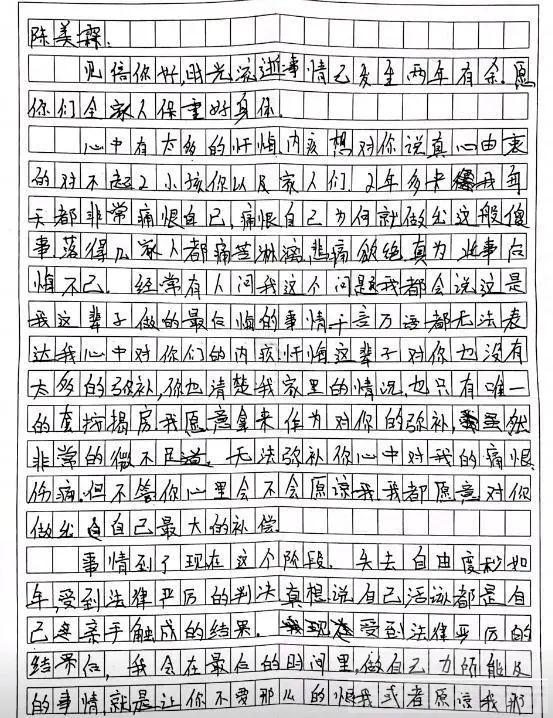 陈美霖.
见信你好,时光流逝事情已发生两年有余.愿
你们全家人保重好身体.
心中有太多的忏悔内疚想对你说真心由衷
的对不起2小孩你以及家人们.2年多来我每
天都非常痛恨自己,痛恨自己为何就做出这般傻
事落得几家人都痛苦淋漓,悲痛欲绝真为此事后
悔不已.经常有人问我这个问题我都会说这是
我这辈子做的最后悔的事情千言万语都无法表
达我心中对你们的内疚忏悔这辈子对你也没有
太多的弥补,你也清楚我家里的情况.也只有唯一
的套按揭房我愿意拿来作为对你的弥补,虽然
非常的微不足道.无法弥补你心中对我的痛恨.
伤痛.但不管你心里会不会原谅我我都愿意对你
做出自己最大的补偿
事情到了现在这个阶段.失去自由度秒如
年,受到法律严厉的判决真想说自己活该都是自
己亲手触成的结果.受到法律严厉的
结果后,我会在最后的时间里,做自己力所能及
的事情,就是让你不要那么的恨我或者原谅我那